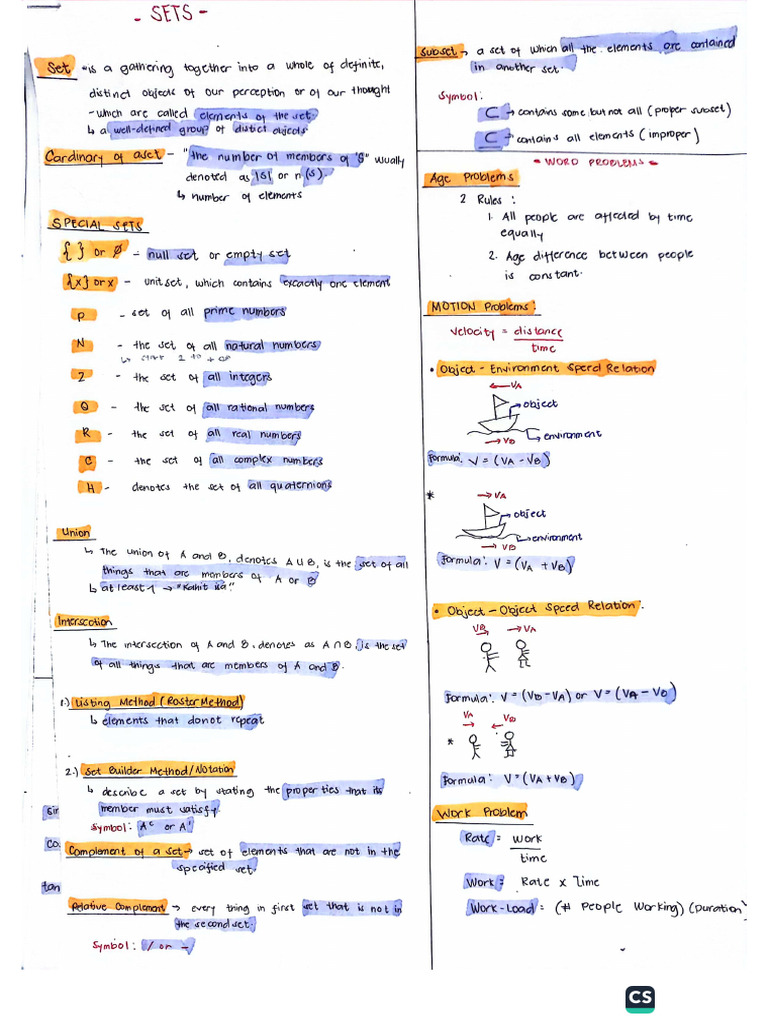 - SETS -
Set "is a gathering together into a whole of definite,
distinct objects of our perception or of our thought
- which are called elements of the set.
↳ a well-defined group of distict objects.
Cardinary of a set - "the number of members of 'S" wually
denoted as |S| or n(s).
↳ number of elements
SPECIAL SETS
{ } or ∅ - null set or empty set
{x} or x - unit set, which contains excactly one element
P - set of all prime numbers
N - the set of all natural numbers
↳ start 2 to + ∞
Z - the set of all integers
Q - the set of all rational numbers
R - the set of all real numbers
C - the set of all complex numbers
H - denotes the set of all quaternions
Union
↳ The union of A and B, denotes A ∪ B, is the set of all
things that are mombers of A or B
↳ at least 1 → "Kahit isa"
Interscotion
↳ The intersection of A and B, denotes as A ∩ B, is the set
of all things that are members of A and B.
1.) Listing Method (Roster Method)
↳ elements that donot repeat
2.) Set Builder Method/Notation
↳ describe a set by stating the properties that its
member must satisfy.
Symbol: Aᶜ or A'
Complement of a set → set of elements that are not in the
specified set.
Relative Complement → every thing in first set that is not in
the second set.
Symbol: / or -
sin
co
tan
Subset → a set of which all the elements are contained
in another set.
Symbol:
⊂ → contains some but not all (proper subset)
⊂ → contains all elements (improper)
- WORD PROBLEMS -
Age Problems
2 Rules:
1. All people are affected by time
equally
2. Age difference between people
is constant.
MOTION Problems:
Velocity = distance
time
• Object - Environment Speed Relation
← VA
object
environment
→ VB
Formula: V = (VA - VB)
* → VA
object
environment
→ VB
Formula: V = (VA + VB)
• Object - Object Speed Relation.
VB → VA
Formula: V = (VB - VA) or V = (VA - VB)
VA VB
*
Formula: V = (VA + VB)
Work Problem
Rate = work
time
Work = Rate x Time
Work-Load = (# People Working) (Duration)
CS